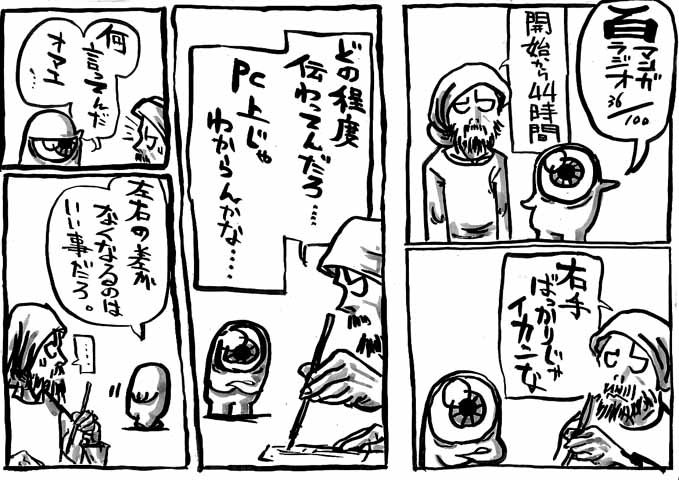 百
マンガ
ラジオ
36/100
開始から44時間
右手
ばっかりじゃ
イカンな
どの程度
伝わってんだろ……
PC上じゃ
わからんかな……
何
言ってんだ
オマエ…
左右の差が
なくなるのは
いい事だろ。
…